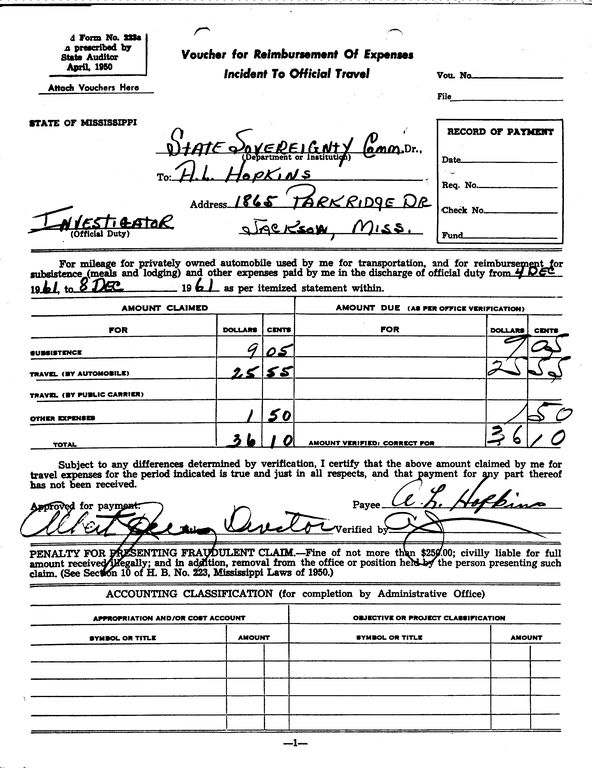 d Form No. 223a
prescribed by
State Auditor
April, 1950
Attach Vouchers Here
Voucher for Reimbursement Of Expenses
Incident To Official Travel
Vou. No.
File
STATE OF MISSISSIPPI
STATE SOVEREIGNTY Comm. Dr.,
(Department or Institution)
To: A.L. HOPKINS
Address 1865 PARKRIDGE DR
INVESTIGATOR
(Official Duty)
JACKSON, MISS.
RECORD OF PAYMENT
Date
Req. No.
Check No.
Fund
For mileage for privately owned automobile used by me for transportation, and for reimbursement for
subsistence (meals and lodging) and other expenses paid by me in the discharge of official duty from 4 DEC
1961, to 8 DEC 1961 as per itemized statement within.
AMOUNT CLAIMED AMOUNT DUE (AS PER OFFICE VERIFICATION)
FOR DOLLARS CENTS FOR DOLLARS CENTS
SUBSISTENCE 9 05 9 05
TRAVEL (BY AUTOMOBILE) 25 55 25 55
TRAVEL (BY PUBLIC CARRIER)
OTHER EXPENSES 1 50 1 50
TOTAL 36 10 AMOUNT VERIFIED: CORRECT FOR 36 10
Subject to any differences determined by verification, I certify that the above amount claimed by me for
travel expenses for the period indicated is true and just in all respects, and that payment for any part thereof
has not been received.
Approved for payment: Payee A. L. Hopkins
Albert Director Verified by
PENALTY FOR PRESENTING FRAUDULENT CLAIM.—Fine of not more than $250.00; civilly liable for full
amount received illegally; and in addition, removal from the office or position held by the person presenting such
claim. (See Section 10 of H. B. No. 223, Mississippi Laws of 1950.)
ACCOUNTING CLASSIFICATION (for completion by Administrative Office)
APPROPRIATION AND/OR COST ACCOUNT OBJECTIVE OR PROJECT CLASSIFICATION
SYMBOL OR TITLE AMOUNT SYMBOL OR TITLE AMOUNT
—1—